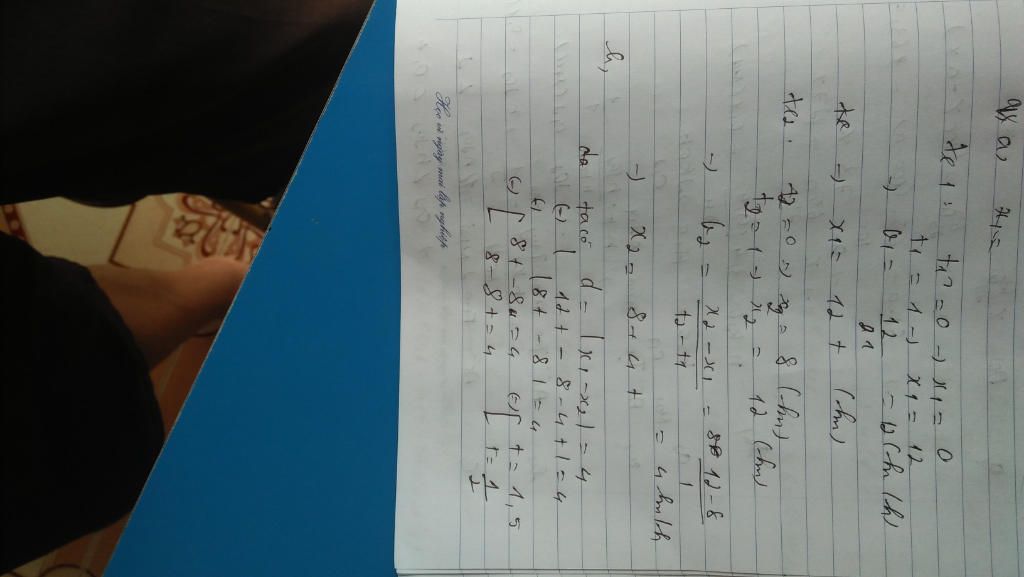 a, x₁ =
t₁ = 0 → x₁ = 0
t₁ = 1 → x₁ = 12
→ v₁ = 12 / 1 = 12 (km/h)
→ x₁ = 12t (km)
t₂ = 0 → x₂ = 8 (km)
t₂ = 1 → x₂ = 12 (km)
→ v₂ = x₂ - x₁ / t₂ - t₁ = 12 - 8 / 1 = 4 km/h
→ x₂ = 8 + 4t
b,
ta có d = |x₁ - x₂| = 4
(-) | 12t - 8 - 4t | = 4
(-) |8t - 8| = 4
(-) [ 8t - 8 = 4 (-) [ t = 1,5
8 - 8t = 4 t = 1/2
Học vì ngày mai lập nghiệp